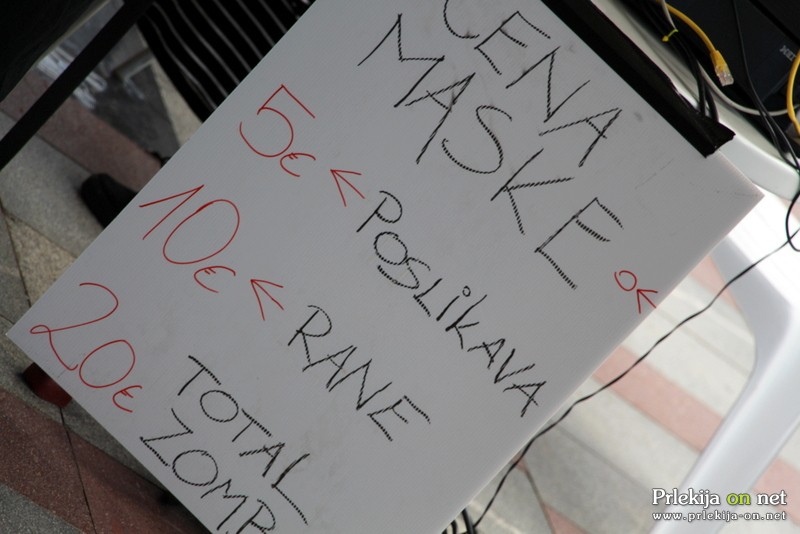 CENA
MASKE
5€ ← POSLIKAVA
10€ ← RANE
20€ TOTAL
Prlekija on net
www.prlekija-on.net